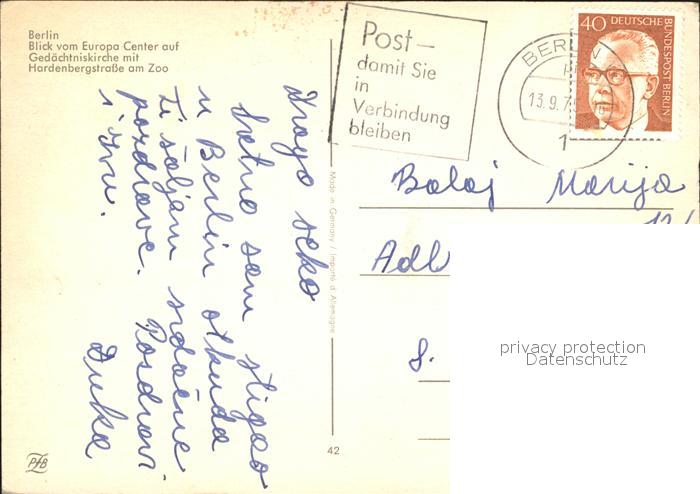 Berlin
Blick vom Europa Center auf
Gedächtniskirche mit
Hardenbergstraße am Zoo
Post –
damit Sie
in
Verbindung
bleiben
BERLIN
13.9.7
1
40 DEUTSCHE
BUNDESPOST BERLIN
Drago seko
sretno sam stigao
u Berlin otkuda
Ti šaljem srdačne
pozdrave. Pozdravi
i Ivu.
Duka
Made in Germany / Imprimé d'Allemagne
Balaj Marija
Adl
S.
privacy protection
Datenschutz
42
PHB